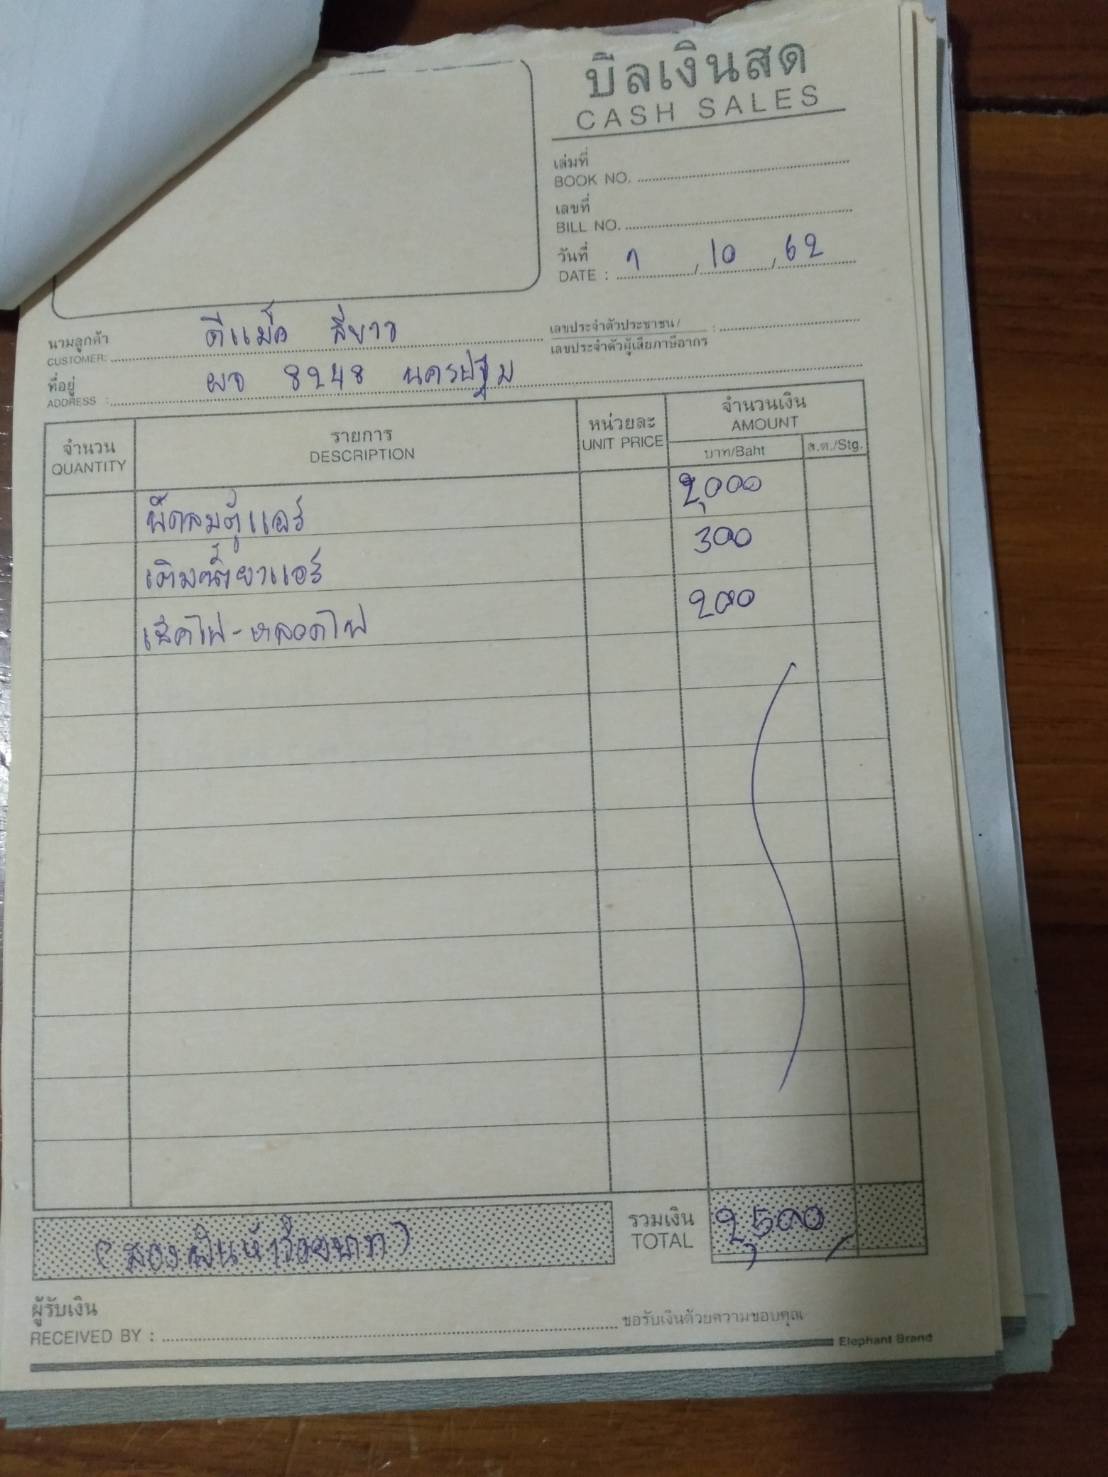 บิลเงินสด
CASH SALES
เล่มที่
BOOK NO.
เลขที่
BILL NO.
วันที่
DATE : 7 / 10 / 62
นามลูกค้า
CUSTOMER: ดีแม็ค สีขาว
เลขประจำตัวประชาชน/ :
เลขประจำตัวผู้เสียภาษีอากร
ที่อยู่
ADDRESS : ผอ 8248 นครปฐม
จำนวน
QUANTITY
รายการ
DESCRIPTION
หน่วยละ
UNIT PRICE
จำนวนเงิน
AMOUNT
บาท/Baht ส.ต./Stg.
พัดลมตู้แอร์ 2,000
เติมน้ำยาแอร์ 300
เช็คไฟ-หลอดไฟ 200
(สองพันห้าร้อยบาท)
รวมเงิน
TOTAL 2,500
ผู้รับเงิน
RECEIVED BY :
ขอรับเงินด้วยความขอบคุณ
Elephant Brand